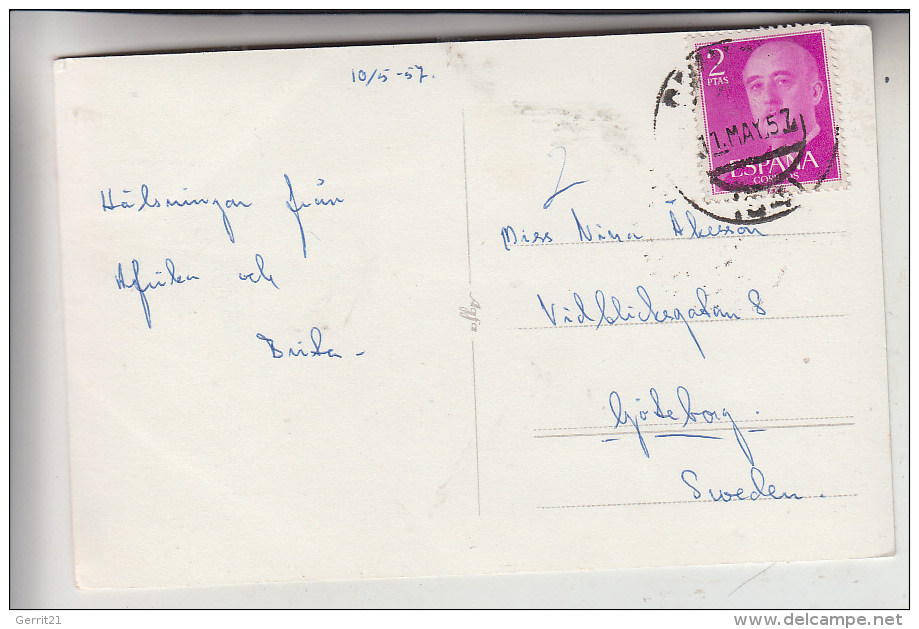 10/5-57.
2
PTAS
11.MAY.57
ESPAÑA
CORREOS
2
Hälsningar från
Afrika och
Brita -
Miss Nina Åkesson
Vidblicksgatan 8
Göteborg.
Sweden.
Agfa
Gerrit21
www.delcampe.net